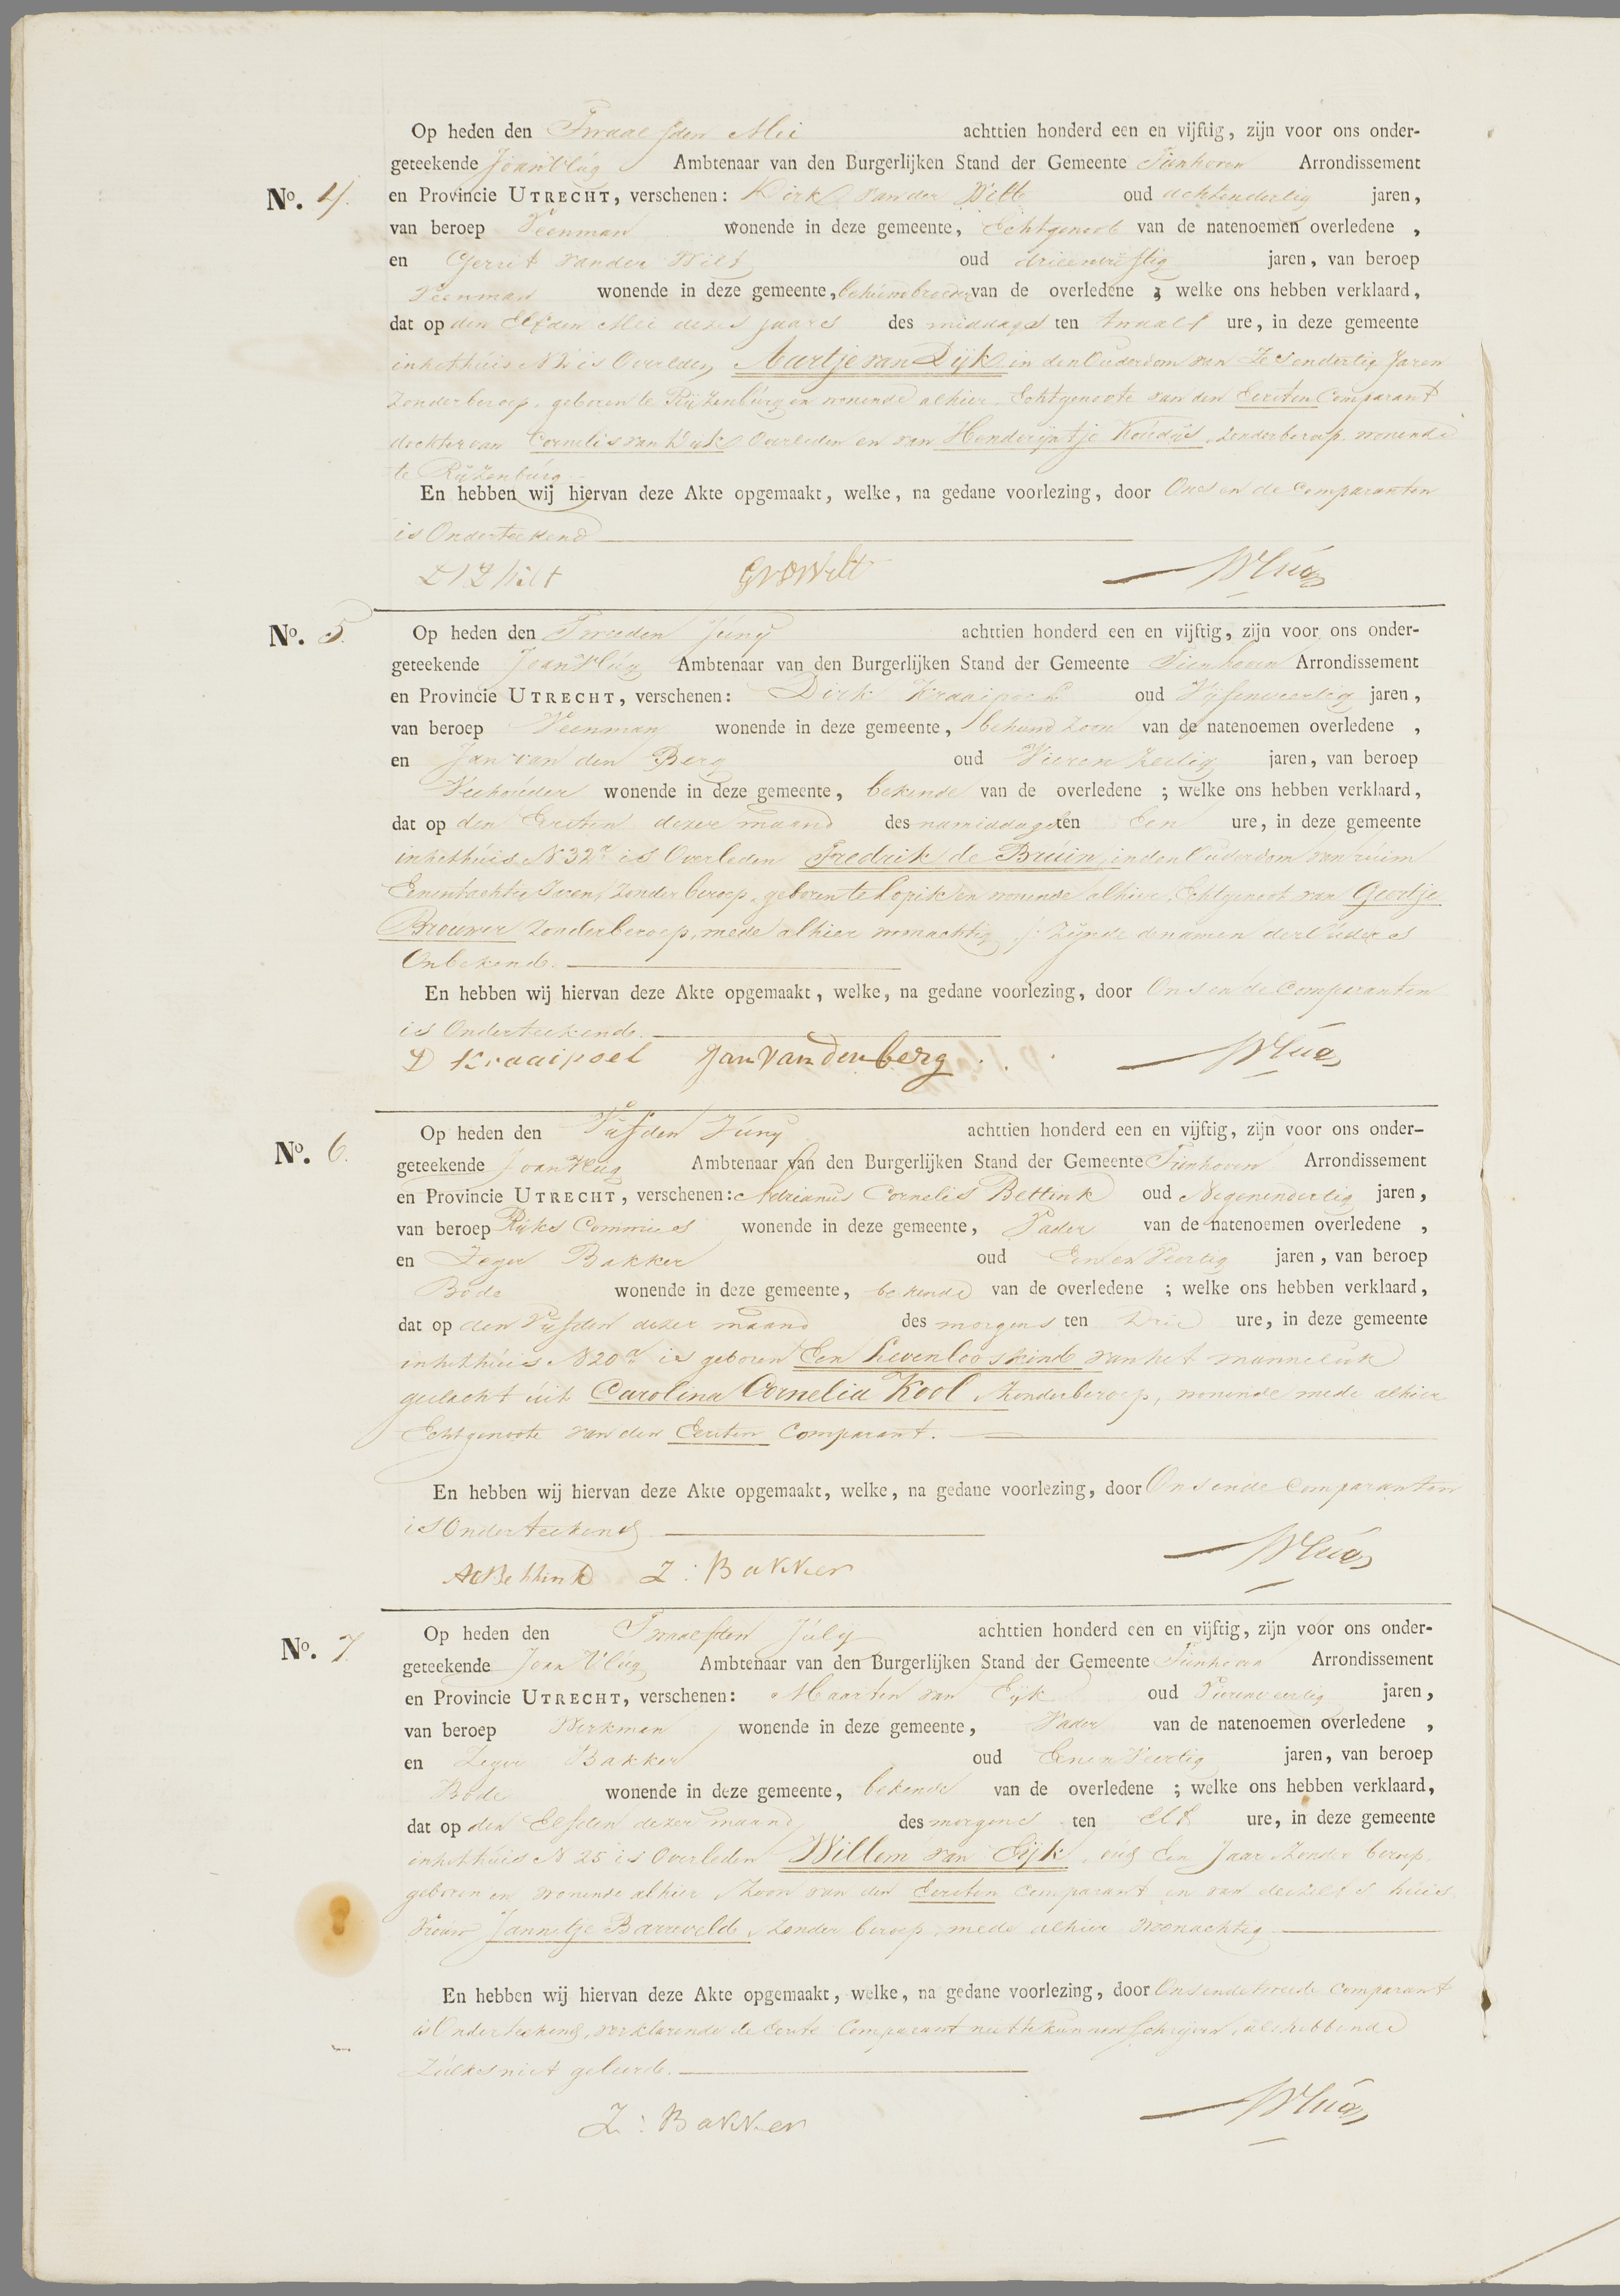 Op heden den Twaalfden Mei achttien honderd een en vijftig, zijn voor ons onder-
geteekende Joan Vlúg Ambtenaar van den Burgerlijken Stand der Gemeente Tienhoven Arrondissement
No. 4. en Provincie UTRECHT, verschenen: Dirk van der Wilt oud achtendertig jaren,
van beroep Veenman wonende in deze gemeente, Echtgenoot van de natenoemen overledene ,
en Gerrit van der Wilt oud drieenvijftig jaren, van beroep
Veenman wonende in deze gemeente, behuwdbroeder van de overledene ; welke ons hebben verklaard,
dat op den Elfden Mei dezes jaars des middags ten twaalf ure, in deze gemeente
in het húis N is Overleden Aartje van Dijk in den Ouderdom van Zesendertig Jaren
zonder beroep, geboren te Rijzenbúrg en wonende alhier, Echtgenoote van den Eersten Comparant
dochter van Cornelis van Dijk Overleden en van Henderijntje zonder beroep, wonende
te Rijzenbúrg
En hebben wij hiervan deze Akte opgemaakt, welke, na gedane voorlezing, door Ons en de Comparanten
is Onderteekend
D V D Wilt GVDWilt JVlúg
No. 5. Op heden den Tweeden Júny achttien honderd een en vijftig, zijn voor ons onder-
geteekende Joan Vlúg Ambtenaar van den Burgerlijken Stand der Gemeente Tienhoven Arrondissement
en Provincie UTRECHT, verschenen: Dirk Kraaipoel oud Vijfenveertig jaren,
van beroep Veenman wonende in deze gemeente, behuwd zoon van de natenoemen overledene ,
en Jan van den Berg oud Vieren Zestig jaren, van beroep
Veehoúder wonende in deze gemeente, bekende van de overledene ; welke ons hebben verklaard,
dat op den Eersten dezer maand des namiddags ten Een ure, in deze gemeente
in het húis N 32 is Overleden Fredrik de Brúin, in den Ouderdom van rúim
Eenentachtig Jaren, zonder beroep, geboren te Lopik en wonende alhier, Echtgenoot van Geertje
Broúwer zonder beroep, mede alhier woonachtig, zijnde de namen der Oúders
Onbekend.
En hebben wij hiervan deze Akte opgemaakt, welke, na gedane voorlezing, door Ons en de Comparanten
is Onderteekend.
D Kraaipoel Jan van den berg JVlúg
No. 6. Op heden den Vijfden Júny achttien honderd een en vijftig, zijn voor ons onder-
geteekende Joan Vlúg Ambtenaar van den Burgerlijken Stand der Gemeente Tienhoven Arrondissement
en Provincie UTRECHT, verschenen: Adrianus Cornelis Bettink oud Negenendertig jaren,
van beroep Rijks Commies wonende in deze gemeente, Vader van de natenoemen overledene ,
en Zeger Bakker oud Eenen Veertig jaren, van beroep
Bode wonende in deze gemeente, bekende van de overledene ; welke ons hebben verklaard,
dat op den Vijfden dezer maand des morgens ten Drie ure, in deze gemeente
in het húis N 20 is geboren Een Levenloos kind van het mannelijk
geslacht úit Carolina Cornelia Kool, zonder beroep, wonende mede alhier
Echtgenoote van den Eersten Comparant.
En hebben wij hiervan deze Akte opgemaakt, welke, na gedane voorlezing, door Ons en de Comparanten
is Onderteekend
ACBettink Z: Bakker JVlúg
No. 7 Op heden den Twaalfden Júly achttien honderd een en vijftig, zijn voor ons onder-
geteekende Joan Vlúg Ambtenaar van den Burgerlijken Stand der Gemeente Tienhoven Arrondissement
en Provincie UTRECHT, verschenen: Maarten van Eijk oud Vierenveertig jaren,
van beroep Werkman wonende in deze gemeente, Vader van de natenoemen overledene ,
en Zeger Bakker oud Eenen Veertig jaren, van beroep
Bode wonende in deze gemeente, bekende van de overledene ; welke ons hebben verklaard,
dat op den Elfden dezer maand des morgens ten Elf ure, in deze gemeente
in het húis N 25 is Overleden Willem van Eijk, oúd Een Jaar zonder beroep,
geboren en wonende alhier Zoon van den Eersten Comparant en van deszelfs húis
vroúw Jannetje Barneveld, zonder beroep, mede alhier woonachtig
En hebben wij hiervan deze Akte opgemaakt, welke, na gedane voorlezing, door Ons en de tweede Comparant
is Onderteekend, verklarende de Eerste Comparant niet te kunnen schrijven, als hebbende
zúlks niet geleerd.
Z: Bakker JVlúg